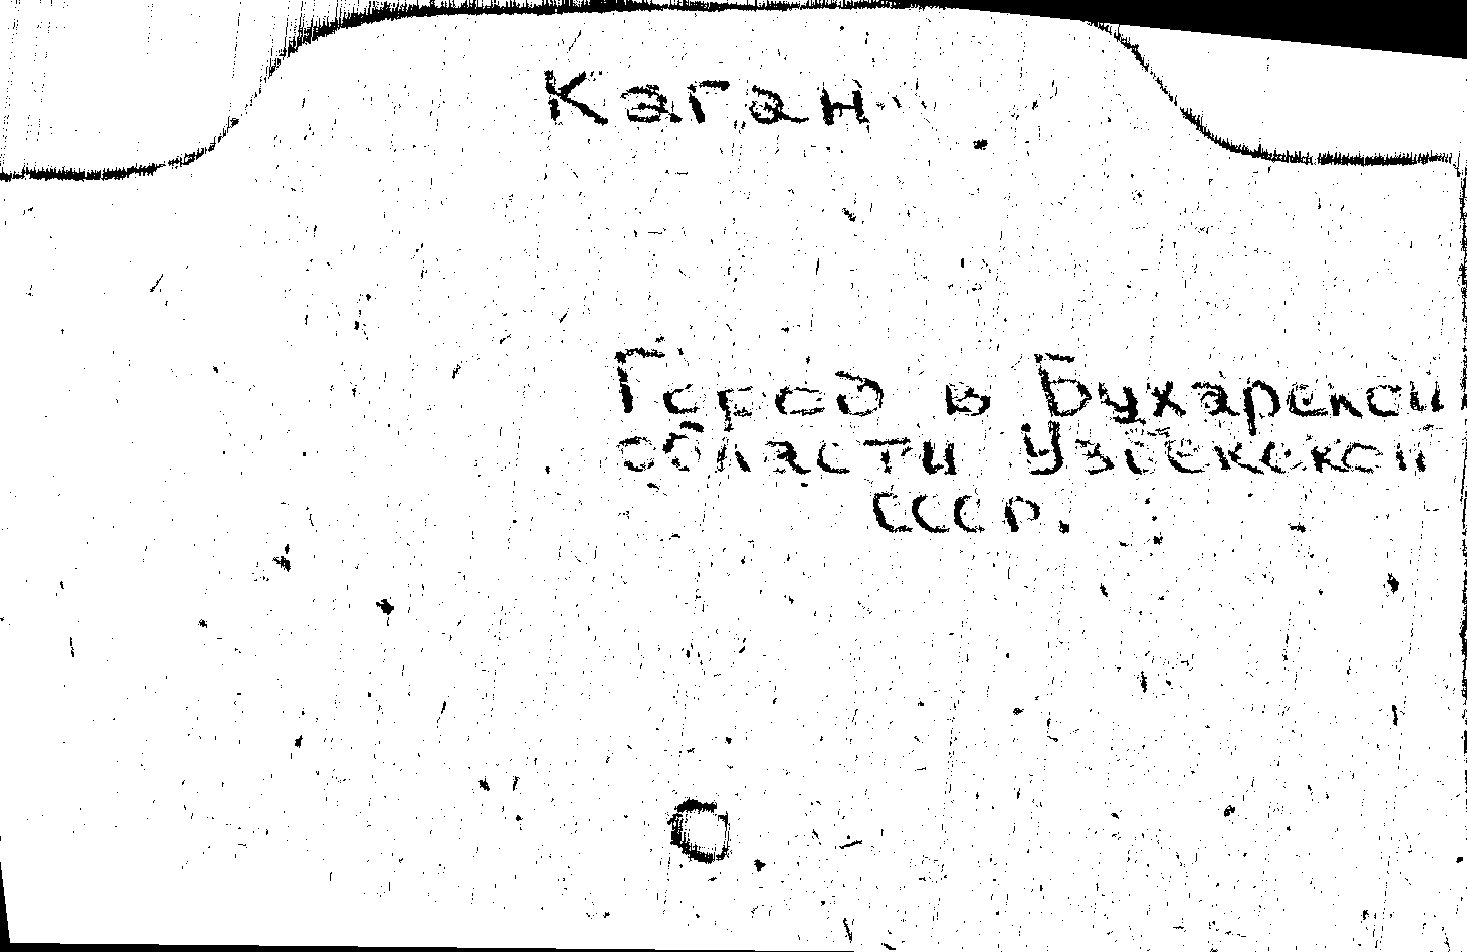 Каган
Город в Бухарской
области Узбекской
ССР.